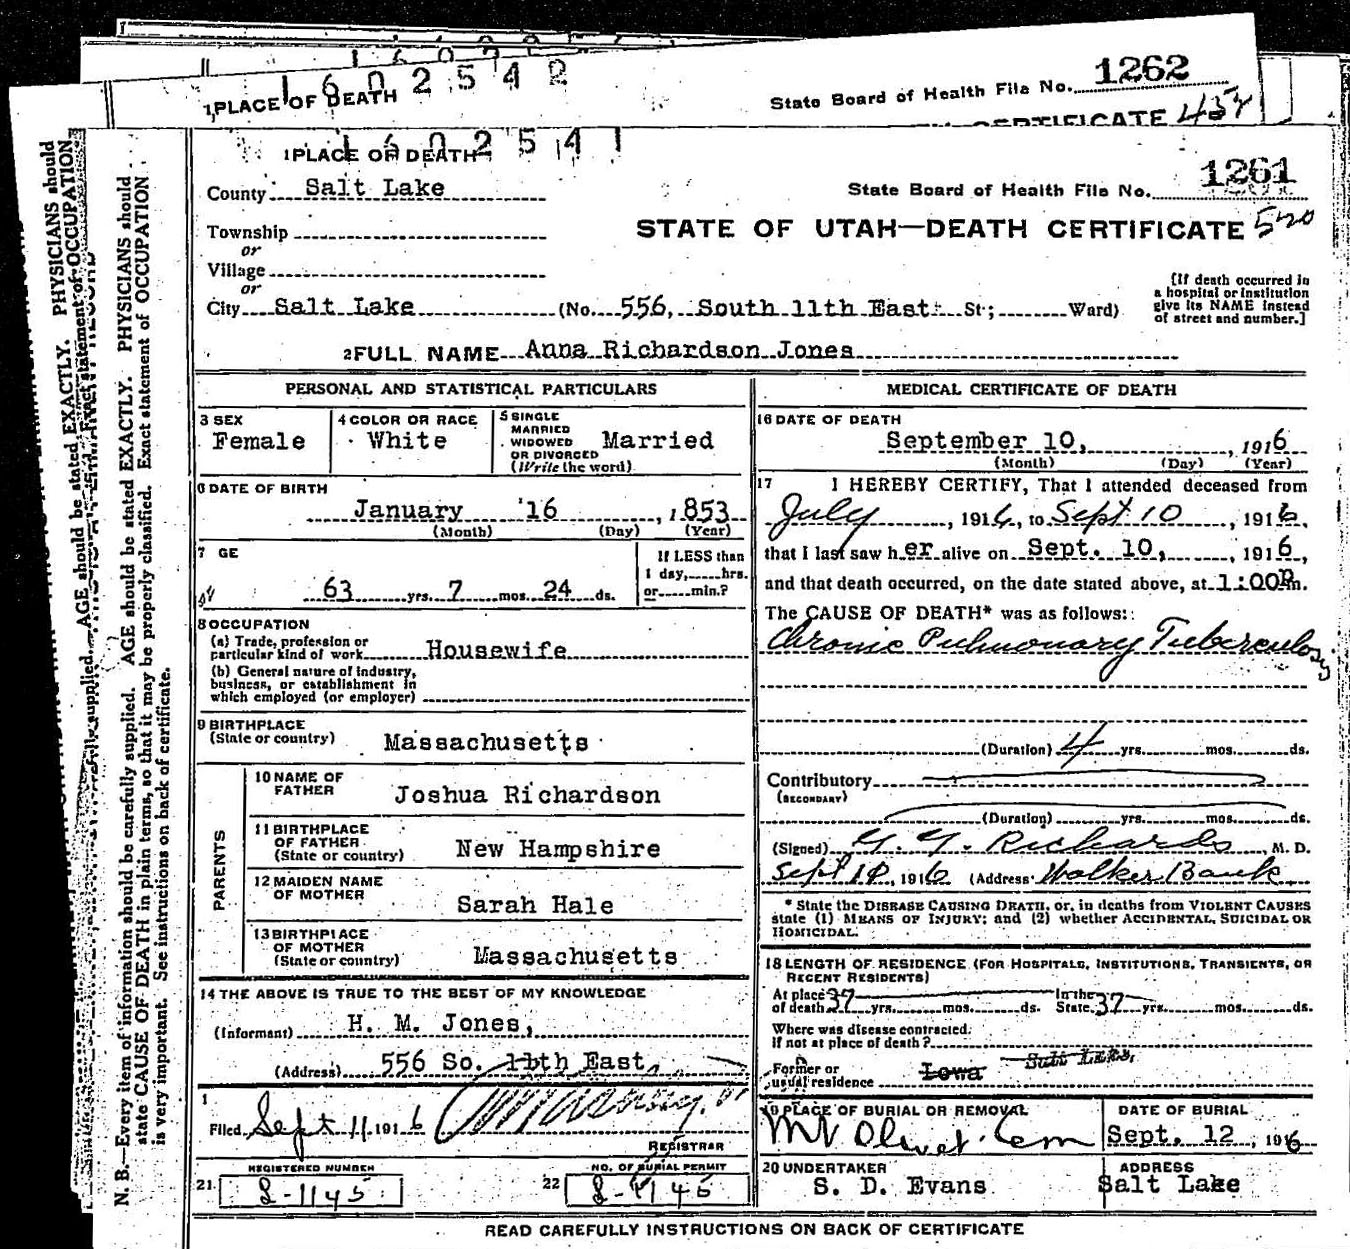 1 6 0 2 5 4 2
1 PLACE OF DEATH
State Board of Health File No. 1262
CERTIFICATE 458
1 6 0 2 5 4 1
1 PLACE OF DEATH
State Board of Health File No. 1261
County Salt Lake
STATE OF UTAH—DEATH CERTIFICATE 520
Township
or
Village
or
City Salt Lake (No. 556, South 11th East St.; Ward)
[If death occurred in
a hospital or institution
give its NAME instead
of street and number.]
2 FULL NAME Anna Richardson Jones
PERSONAL AND STATISTICAL PARTICULARS
3 SEX
Female
4 COLOR OR RACE
White
5 SINGLE
MARRIED
WIDOWED
OR DIVORCED
(Write the word)
Married
6 DATE OF BIRTH
January 16, 1853
(Month) (Day) (Year)
7 GE
63 yrs. 7 mos. 24 ds.
If LESS than
1 day, hrs.
or min.?
8 OCCUPATION
(a) Trade, profession or
particular kind of work Housewife
(b) General nature of industry,
business, or establishment in
which employed (or employer)
9 BIRTHPLACE
(State or country) Massachusetts
PARENTS
10 NAME OF
FATHER
Joshua Richardson
11 BIRTHPLACE
OF FATHER
(State or country) New Hampshire
12 MAIDEN NAME
OF MOTHER
Sarah Hale
13 BIRTHPLACE
OF MOTHER
(State or country) Massachusetts
14 THE ABOVE IS TRUE TO THE BEST OF MY KNOWLEDGE
(Informant) H. M. Jones,
(Address) 556 So. 11th East,
1
Filed Sept 11 1916
REGISTRAR
REGISTERED NUMBER
21 S-1145
NO. OF BURIAL PERMIT
22 S-1145
MEDICAL CERTIFICATE OF DEATH
16 DATE OF DEATH
September 10, , 1916
(Month) (Day) (Year)
17 I HEREBY CERTIFY, That I attended deceased from
July , 1916, to Sept 10 , 1916,
that I last saw her alive on Sept. 10, , 1916,
and that death occurred, on the date stated above, at 1:00 P.m.
The CAUSE OF DEATH* was as follows:
Chronic Pulmonary Tuberculosis
(Duration) 4 yrs. mos. ds.
Contributory
(SECONDARY)
(Duration) yrs. mos. ds.
(Signed) G. G. Richards, M. D.
Sept 10, 1916 (Address Walker Bank
* State the DISEASE CAUSING DEATH, or, in deaths from VIOLENT CAUSES
state (1) MEANS OF INJURY; and (2) whether ACCIDENTAL, SUICIDAL OR
HOMICIDAL.
18 LENGTH OF RESIDENCE (FOR HOSPITALS, INSTITUTIONS, TRANSIENTS, OR
RECENT RESIDENTS)
At place
of death 37 yrs. mos. ds.
In the
State 37 yrs. mos. ds.
Where was disease contracted,
If not at place of death?
Former or
usual residence Iowa Salt Lake,
19 PLACE OF BURIAL OR REMOVAL
Mt Olivet Cem
DATE OF BURIAL
Sept. 12, 1916
20 UNDERTAKER
S. D. Evans
ADDRESS
Salt Lake
READ CAREFULLY INSTRUCTIONS ON BACK OF CERTIFICATE
N. B.—Every item of information should be carefully supplied. AGE should be stated EXACTLY. PHYSICIANS should
state CAUSE OF DEATH in plain terms, so that it may be properly classified. Exact statement of OCCUPATION
is very important. See instructions on back of certificate.
AGE should be stated EXACTLY. PHYSICIANS should